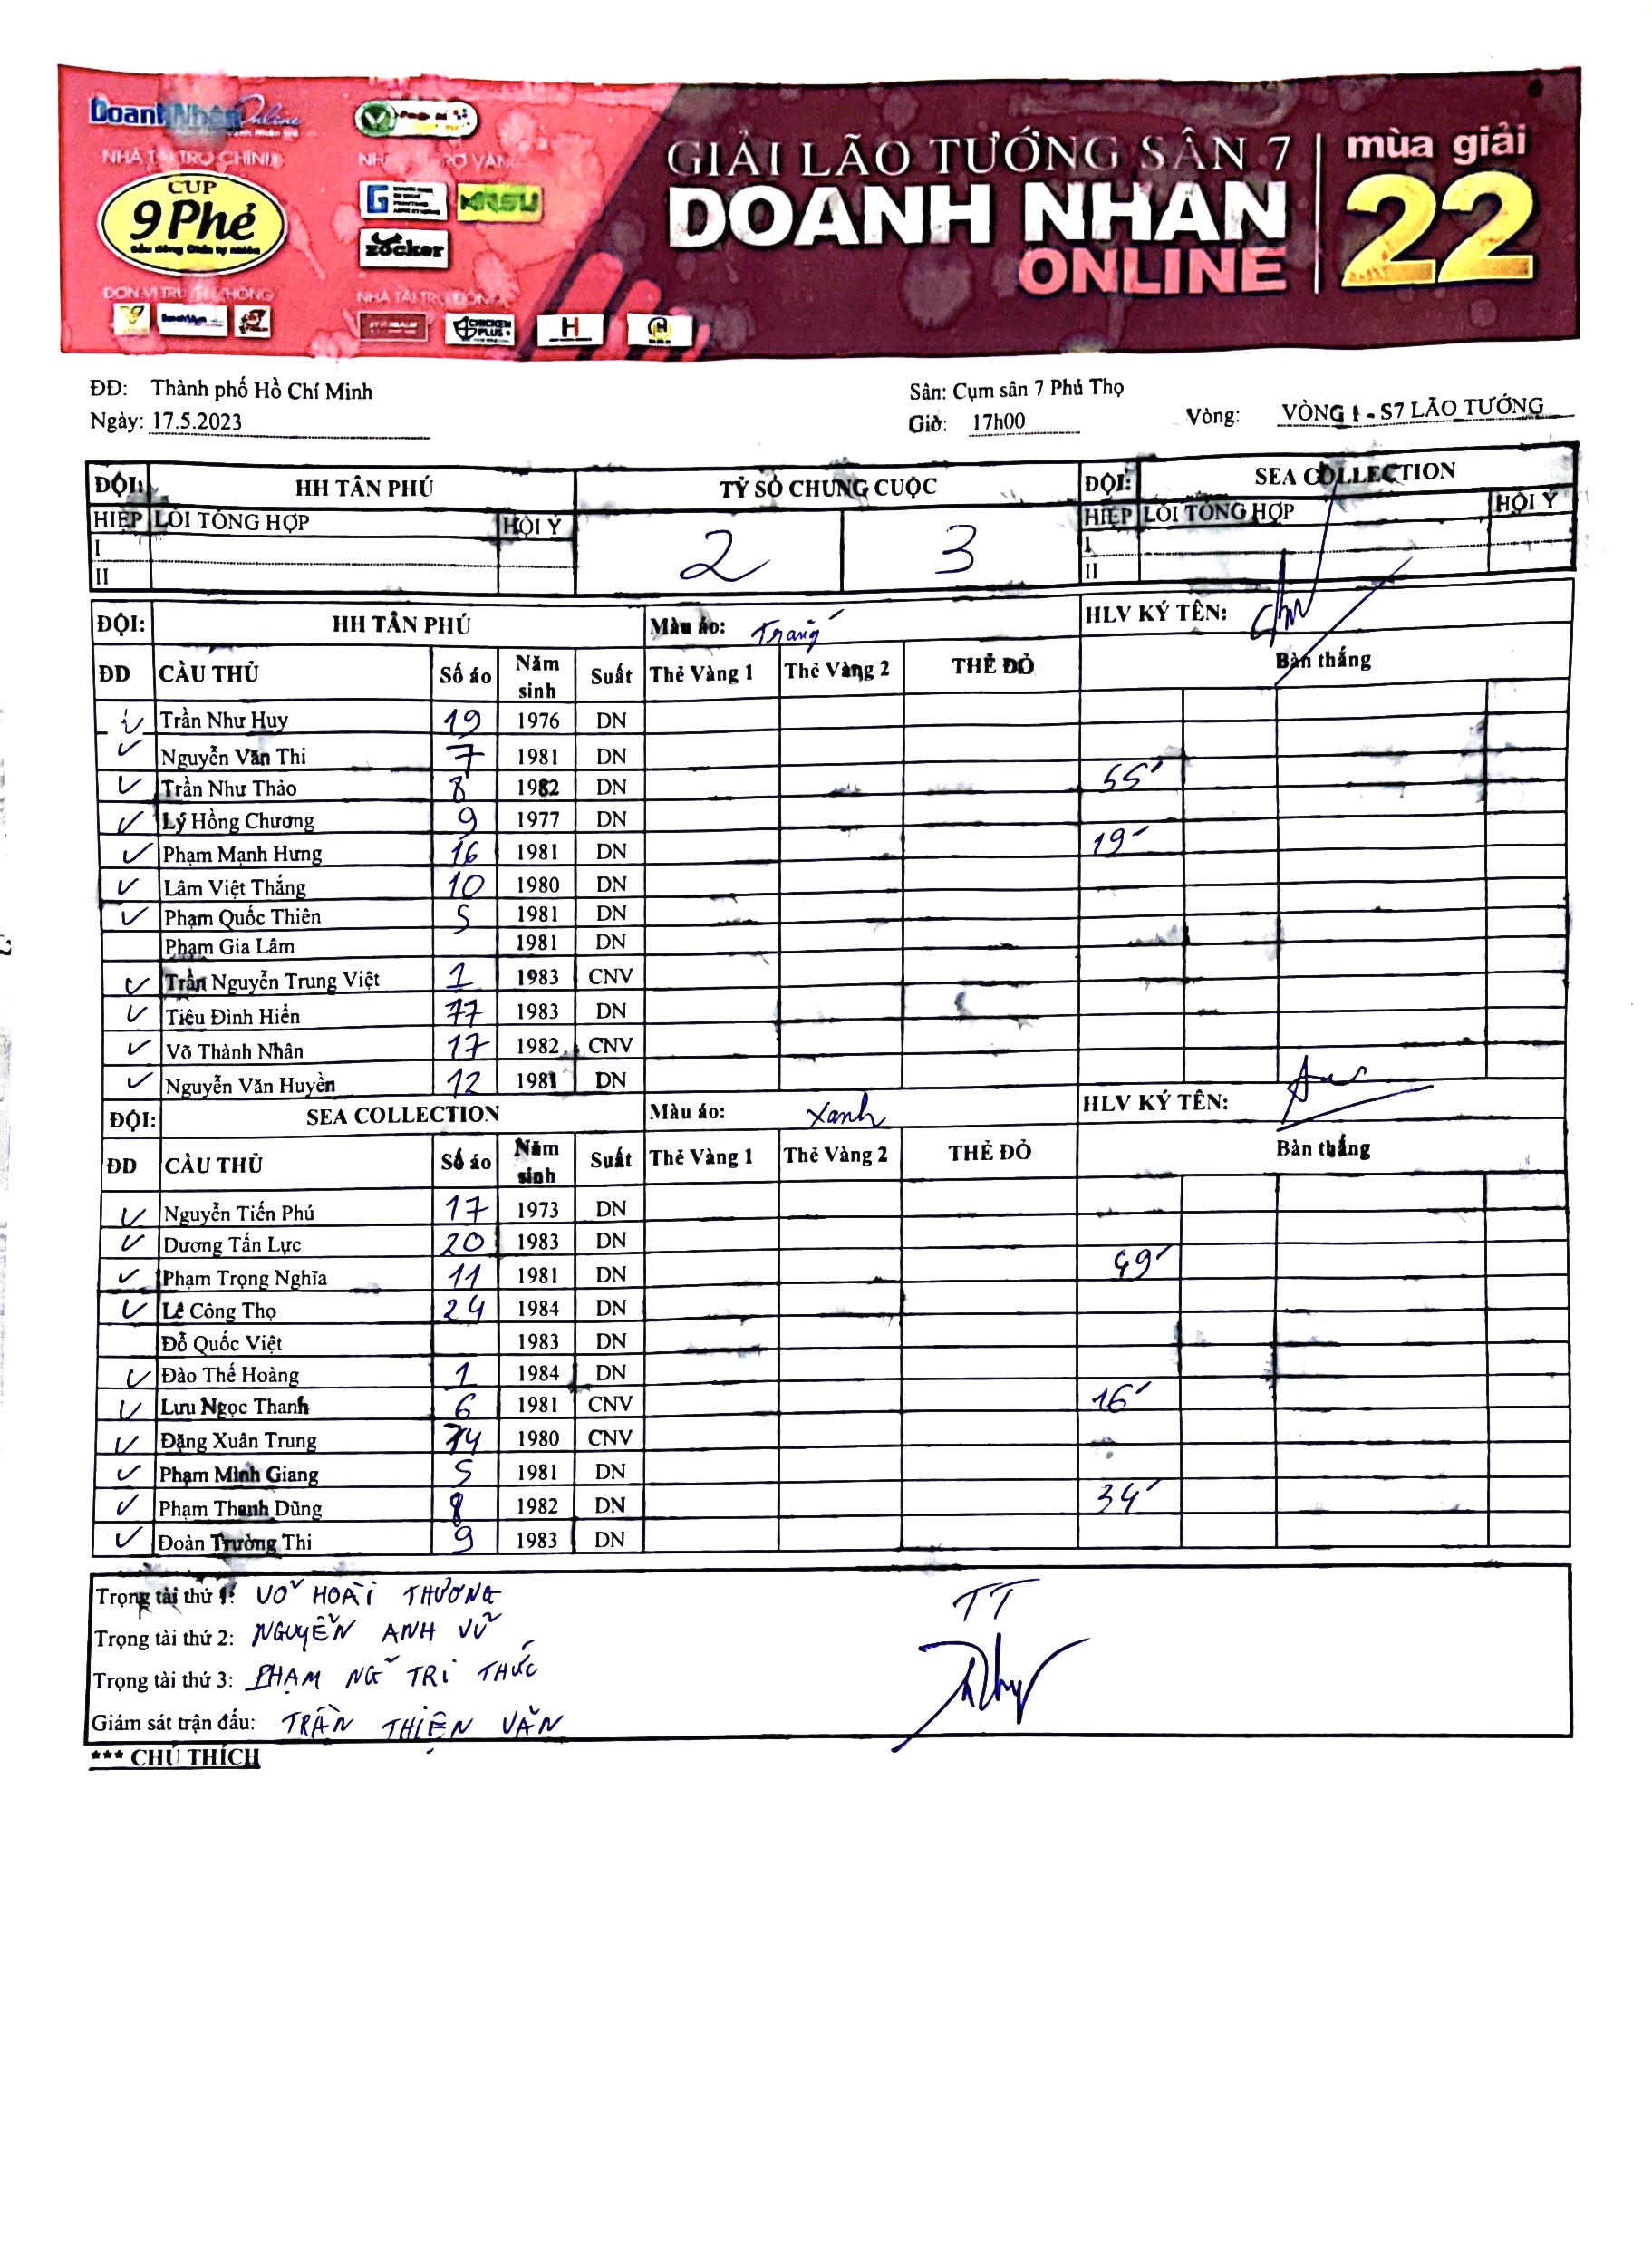 Doanh Nhân Online
NHÀ TÀI TRỢ CHÍNH
CUP
9 Phẻ
GIẢI LÃO TƯỚNG SÂN 7
DOANH NHAN
ONLINE
mùa giải
22
zocker
CHICKEN PLUS
H
ĐĐ: Thành phố Hồ Chí Minh
Sân: Cụm sân 7 Phú Thọ
Ngày: 17.5.2023
Giờ: 17h00
Vòng: VÒNG 1 - S7 LÃO TƯỚNG
ĐỘI: HH TÂN PHÚ TỶ SỐ CHUNG CUỘC ĐỘI: SEA COLLECTION
HIỆP LỖI TỔNG HỢP HỘI Ý 2 3 HIỆP LỖI TỔNG HỢP HỘI Ý
I I
II II
ĐỘI: HH TÂN PHÚ Màu áo: Trắng HLV KÝ TÊN:
ĐD CẦU THỦ Số áo Năm sinh Suất Thẻ Vàng 1 Thẻ Vàng 2 THẺ ĐỎ Bàn thắng
Trần Như Huy 19 1976 DN
Nguyễn Văn Thi 7 1981 DN
Trần Như Thảo 8 1982 DN 55'
Lý Hồng Chương 9 1977 DN
Phạm Mạnh Hưng 16 1981 DN 19'
Lâm Việt Thắng 10 1980 DN
Phạm Quốc Thiên 5 1981 DN
Phạm Gia Lâm 1981 DN
Trần Nguyễn Trung Việt 1 1983 CNV
Tiêu Đình Hiển 77 1983 DN
Võ Thành Nhân 17 1982 CNV
Nguyễn Văn Huyền 12 1981 DN
ĐỘI: SEA COLLECTION Màu áo: Xanh HLV KÝ TÊN:
ĐD CẦU THỦ Số áo Năm sinh Suất Thẻ Vàng 1 Thẻ Vàng 2 THẺ ĐỎ Bàn thắng
Nguyễn Tiến Phú 17 1973 DN
Dương Tấn Lực 20 1983 DN
Phạm Trọng Nghĩa 11 1981 DN 49'
Lê Công Thọ 24 1984 DN
Đỗ Quốc Việt 1983 DN
Đào Thế Hoàng 1 1984 DN
Lưu Ngọc Thanh 6 1981 CNV 16'
Đặng Xuân Trung 14 1980 CNV
Phạm Minh Giang 5 1981 DN
Phạm Thanh Dũng 8 1982 DN 34'
Đoàn Trường Thi 9 1983 DN
Trọng tài thứ 1: VÕ HOÀI THƯƠNG TT
Trọng tài thứ 2: NGUYỄN ANH VŨ
Trọng tài thứ 3: PHẠM NG TRI THỨC
Giám sát trận đấu: TRẦN THIỆN VĂN
*** CHÚ THÍCH